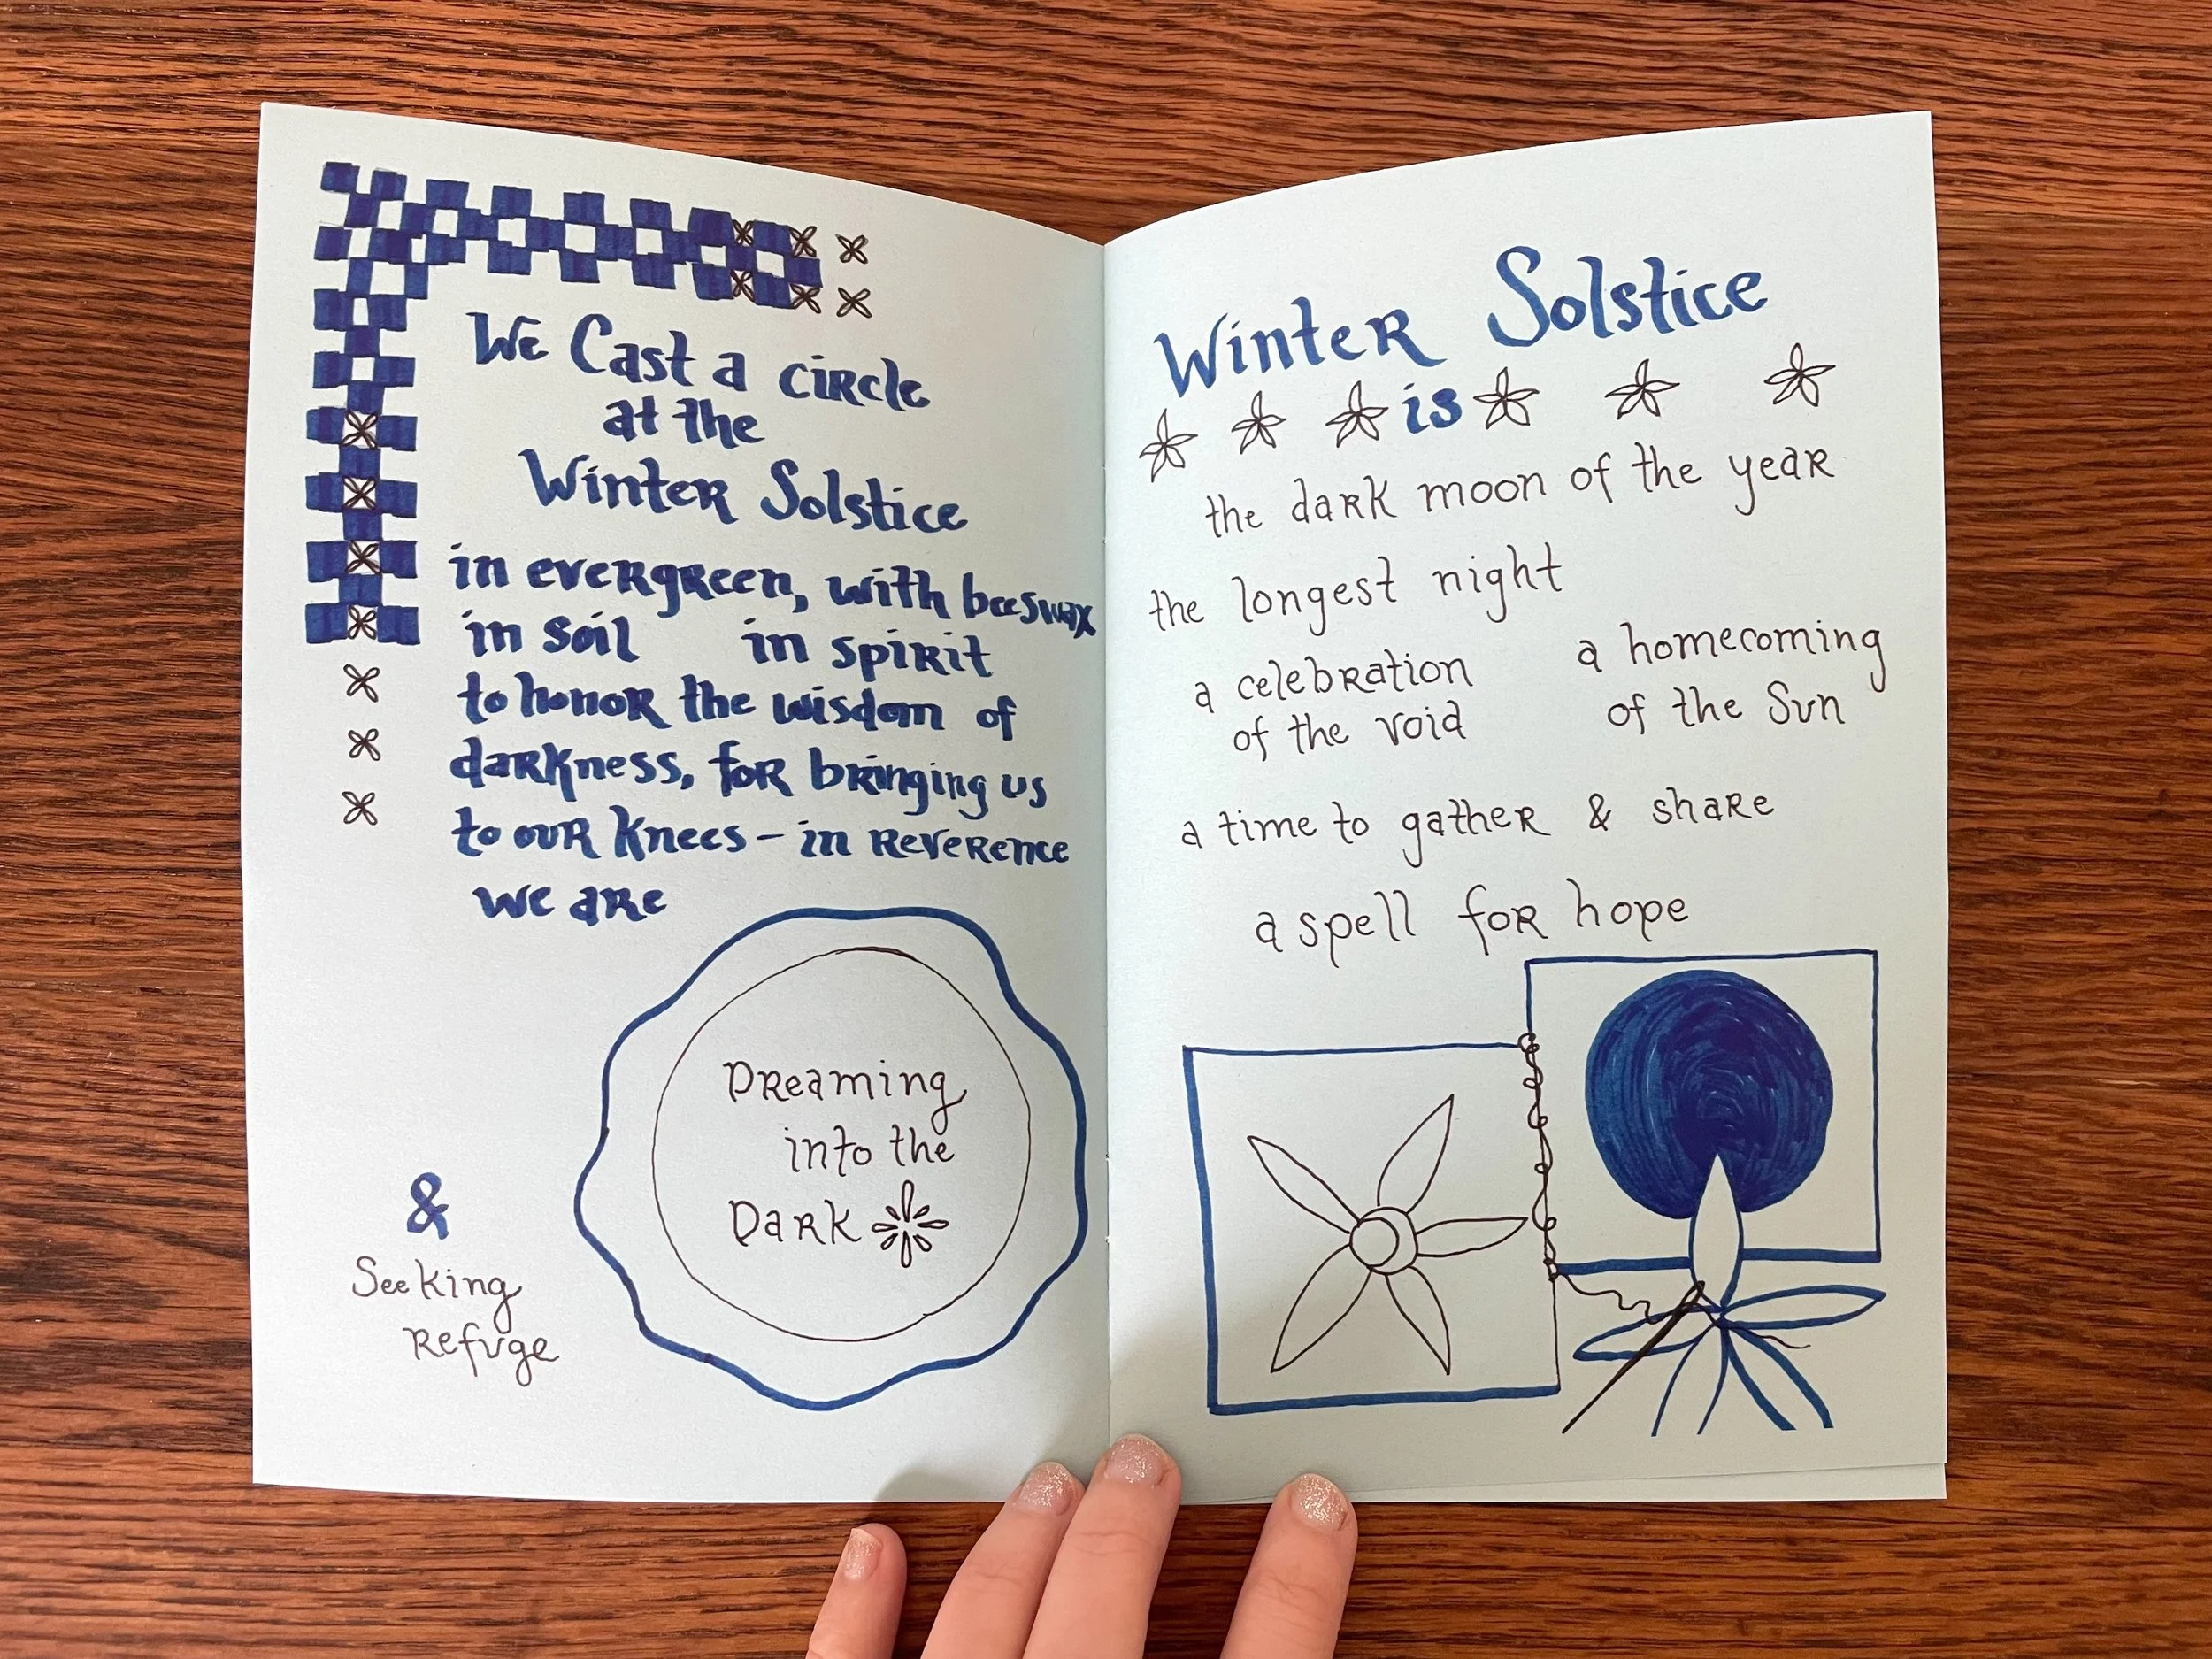 We Cast a circle
at the
Winter Solstice
in evergreen, with beeswax
in soil in spirit
to honor the wisdom of
darkness, for bringing us
to our knees – in reverence
we are
Dreaming
into the
Dark
&
Seeking
Refuge
Winter Solstice
is
the dark moon of the year
the longest night
a celebration
of the void
a homecoming
of the Sun
a time to gather & share
a spell for hope